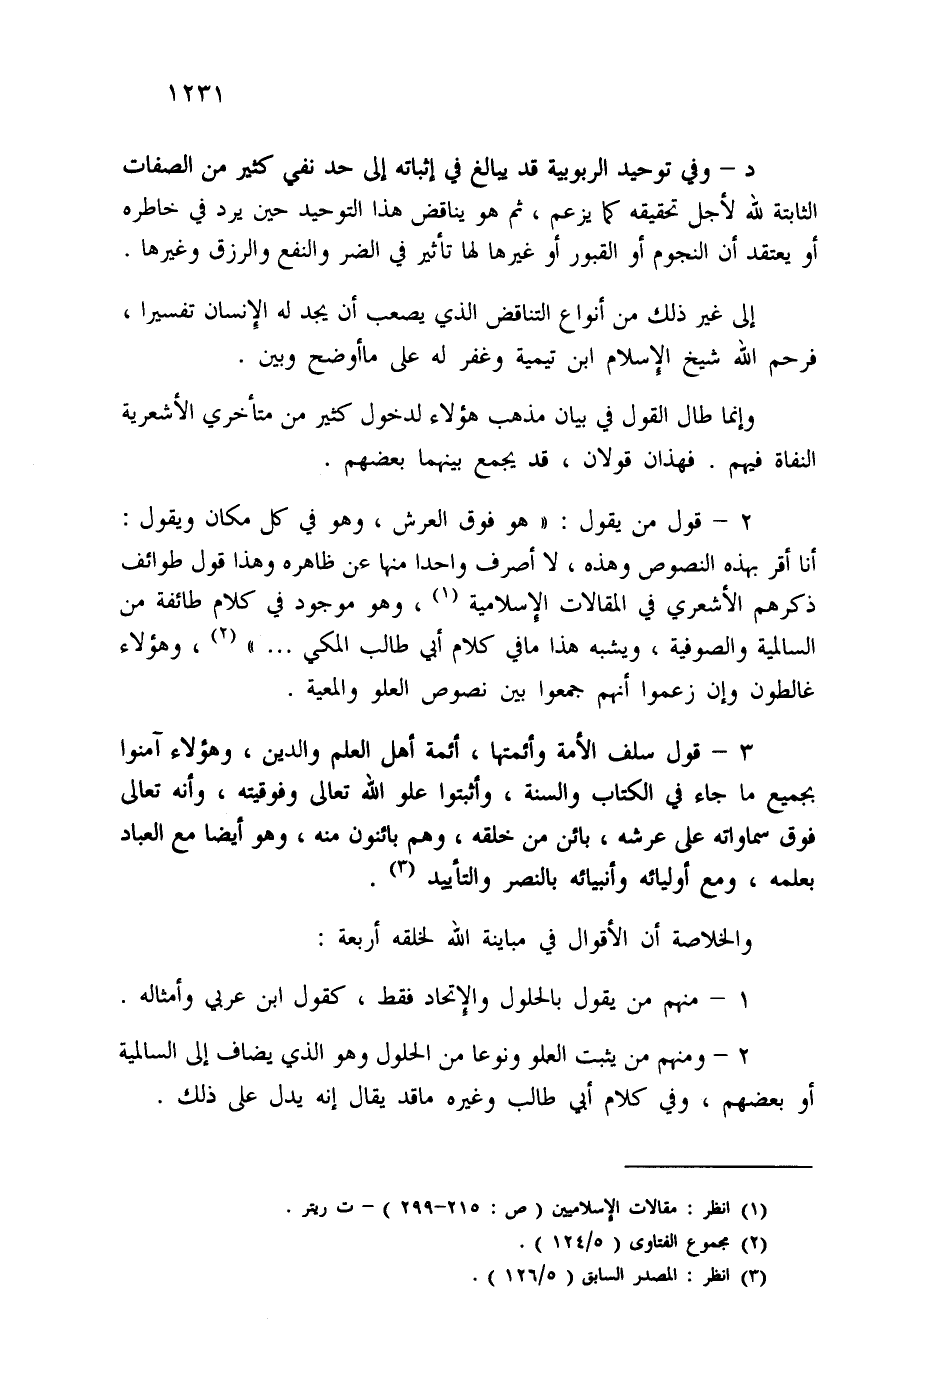 ١٢٣١
د – وفي توحيد الربوبية قد يبالغ في إثباته إلى حد نفي كثير من الصفات
الثابتة لله لأجل تحقيقه كما يزعم ، ثم هو يناقض هذا التوحيد حين يرد في خاطره
أو يعتقد أن النجوم أو القبور أو غيرها لها تأثير في الضر والنفع والرزق وغيرها .
إلى غير ذلك من أنواع التناقض الذي يصعب أن يجد له الإنسان تفسيرا ،
فرحم الله شيخ الإسلام ابن تيمية وغفر له على ماأوضح وبين .
وإنما طال القول في بيان مذهب هؤلاء لدخول كثير من متأخري الأشعرية
النفاة فيهم . فهذان قولان ، قد يجمع بينهما بعضهم .
٢ – قول من يقول : « هو فوق العرش ، وهو في كل مكان ويقول :
أنا أقر بهذه النصوص وهذه ، لا أصرف واحدا منها عن ظاهره وهذا قول طوائف
ذكرهم الأشعري في المقالات الإسلامية (١) ، وهو موجود في كلام طائفة من
السالمية والصوفية ، ويشبه هذا مافي كلام أبي طالب المكي ... » (٢) ، وهؤلاء
غالطون وإن زعموا أنهم جمعوا بين نصوص العلو والمعية .
٣ – قول سلف الأمة وأئمتها ، أئمة أهل العلم والدين ، وهؤلاء آمنوا
بجميع ما جاء في الكتاب والسنة ، وأثبتوا علو الله تعالى وفوقيته ، وأنه تعالى
فوق سماواته على عرشه ، بائن من خلقه ، وهم بائنون منه ، وهو أيضا مع العباد
بعلمه ، ومع أوليائه وأنبيائه بالنصر والتأييد (٣) .
والخلاصة أن الأقوال في مباينة الله لخلقه أربعة :
١ – منهم من يقول بالحلول والإتحاد فقط ، كقول ابن عربي وأمثاله .
٢ – ومنهم من يثبت العلو ونوعا من الحلول وهو الذي يضاف إلى السالمية
أو بعضهم ، وفي كلام أبي طالب وغيره ماقد يقال إنه يدل على ذلك .
(١) انظر : مقالات الإسلاميين ( ص : ٢١٥-٢٩٩ ) – ت ريتر .
(٢) مجموع الفتاوى ( ١٢٤/٥ ) .
(٣) انظر : المصدر السابق ( ١٢٦/٥ ) .